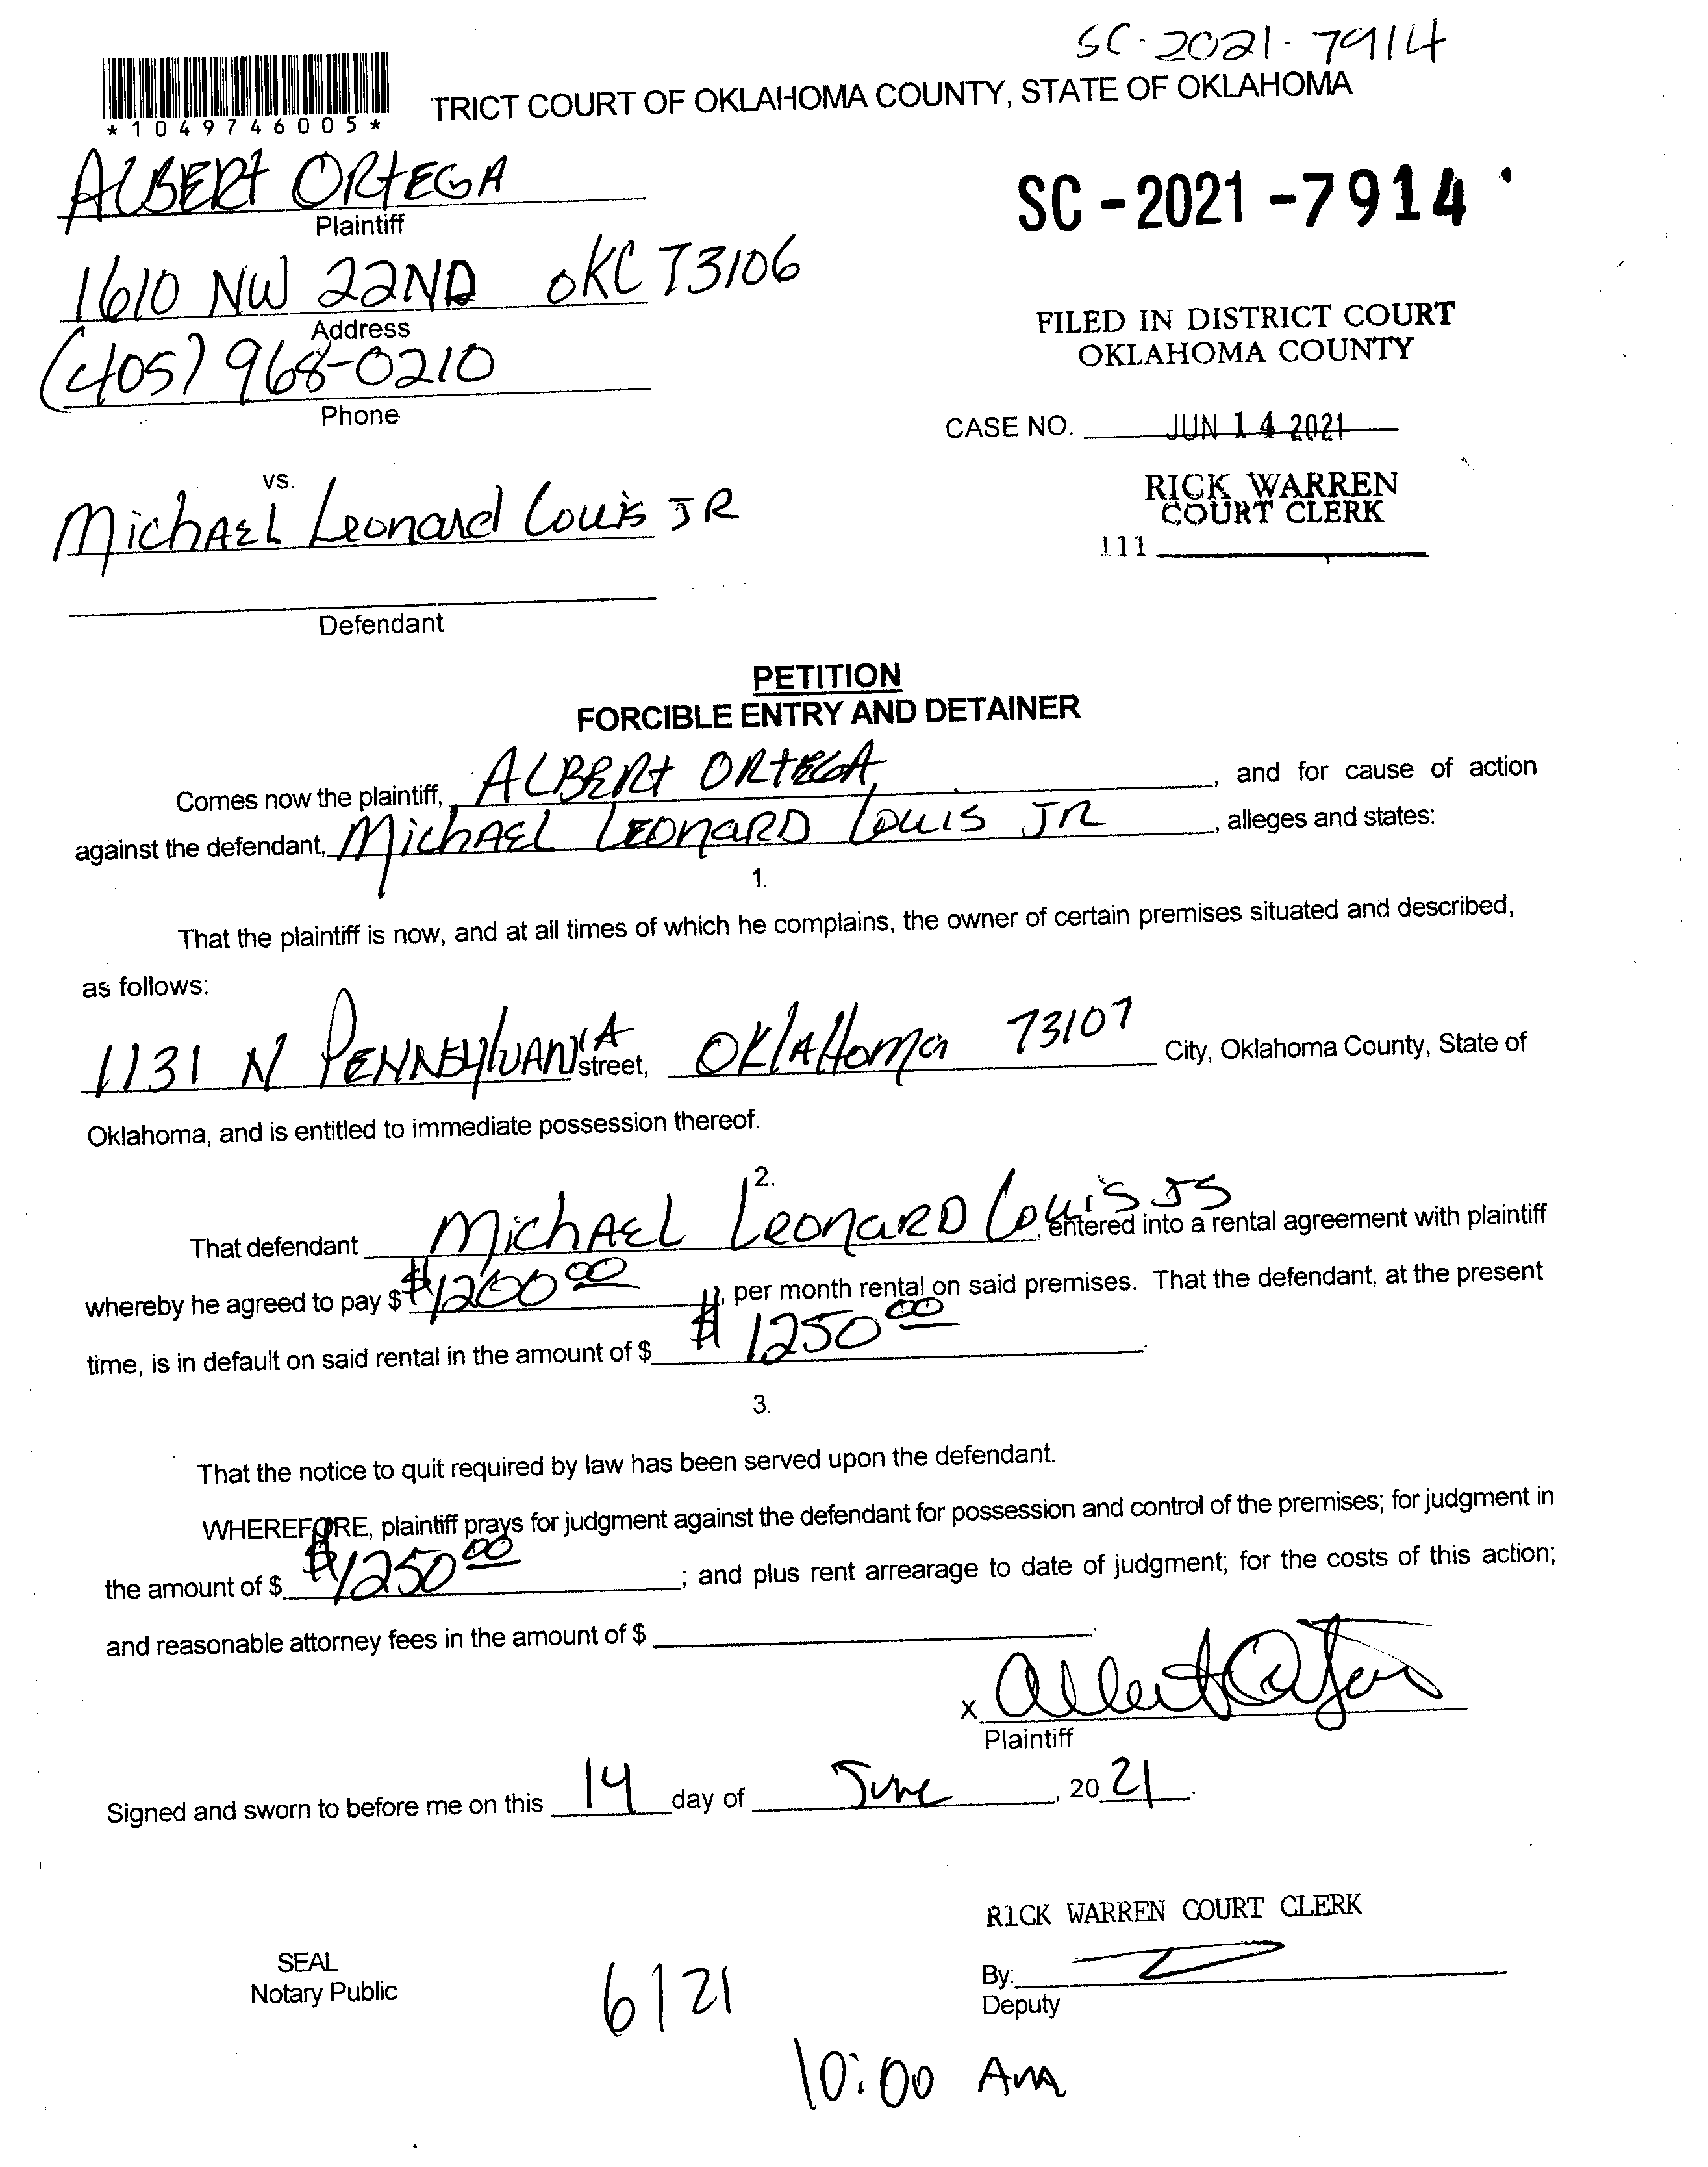 SC-2021-7914
*1049746005*
TRICT COURT OF OKLAHOMA COUNTY, STATE OF OKLAHOMA
ALBERt ORtEGA
Plaintiff
SC-2021-7914
1610 NW 22ND OKC 73106
Address
FILED IN DISTRICT COURT
OKLAHOMA COUNTY
(405) 968-0210
Phone
CASE NO. JUN 14 2021
vs.
RICK WARREN
COURT CLERK
MichAEL Leonard Louis JR
111
Defendant
PETITION
FORCIBLE ENTRY AND DETAINER
Comes now the plaintiff, ALBERt ORtEGA, and for cause of action
against the defendant, MichAEL LEONARD Louis JR, alleges and states:
1.
That the plaintiff is now, and at all times of which he complains, the owner of certain premises situated and described,
as follows:
1131 N PENNSylVANIA street, OKlAHoma 73107 City, Oklahoma County, State of
Oklahoma, and is entitled to immediate possession thereof.
2.
That defendant MichAEL LeonARD Louis JS, entered into a rental agreement with plaintiff
whereby he agreed to pay $ $1200.00, per month rental on said premises. That the defendant, at the present
time, is in default on said rental in the amount of $ $1250.00.
3.
That the notice to quit required by law has been served upon the defendant.
WHEREFORE, plaintiff prays for judgment against the defendant for possession and control of the premises; for judgment in
the amount of $ $1250.00; and plus rent arrearage to date of judgment; for the costs of this action;
and reasonable attorney fees in the amount of $
x Albert Ortega
Plaintiff
Signed and sworn to before me on this 14 day of June, 2021.
RICK WARREN COURT CLERK
SEAL
Notary Public
6/21
By:
Deputy
10:00 Am